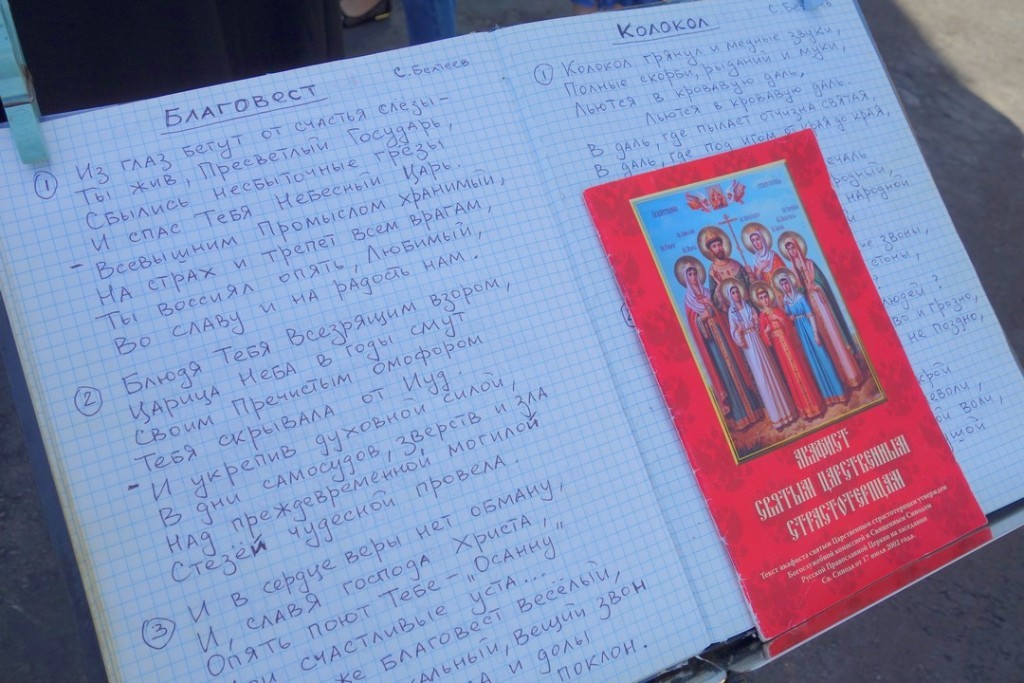 Благовест
С. Бехтеев
① Из глаз бегут от счастья слезы -
Ты жив, Пресветлый Государь,
Сбылись несбыточные грёзы
И спас Тебя Небесный Царь.
- Всевышним Промыслом хранимый,
На страх и трепет всем врагам,
Ты воссиял опять, Любимый,
Во славу и на радость нам.
② Блюдя Тебя Всезрящим взором,
Царица Неба в годы смут
Своим Пречистым омофором
Тебя скрывала от Иуд.
- И укрепив духовной силой,
В дни самосудов, зверств и зла
Над преждевременной могилой
Стезёй чудесной провела.
③ И в сердце веры нет обману,
И, славя господа Христа,
Опять поют Тебе - „Осанну"
счастливые уста...
же благовест весёлый,
вещий звон
и долы
поклон.
Колокол
С.
① Колокол грянул и медные звуки,
Полные скорби, рыданий и муки,
Льются в кровавую даль,
Льются в кровавую даль.
В даль, где пылает отчизна святая,
В даль, где под игом от края до края,
народной
звоны,
стоны,
людей?
и грозно,
не поздно,
воли,
АКАФИСТ
СВЯТЫМ ЦАРСТВЕННЫМ
СТРАСТОТЕРПЦАМ
Текст акафиста святым Царственным страстотерпцам утвержден
Богослужебной комиссией и Священным Синодом
Русской Православной Церкви на заседании
Св. Синода от 17 июля 2002 года.